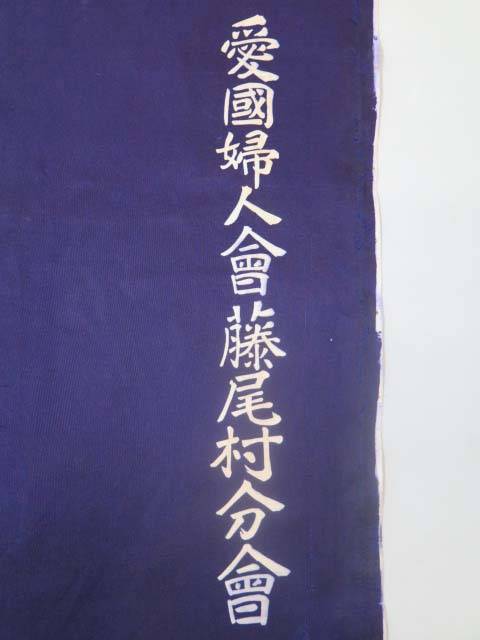 愛國婦人會藤尾村分會